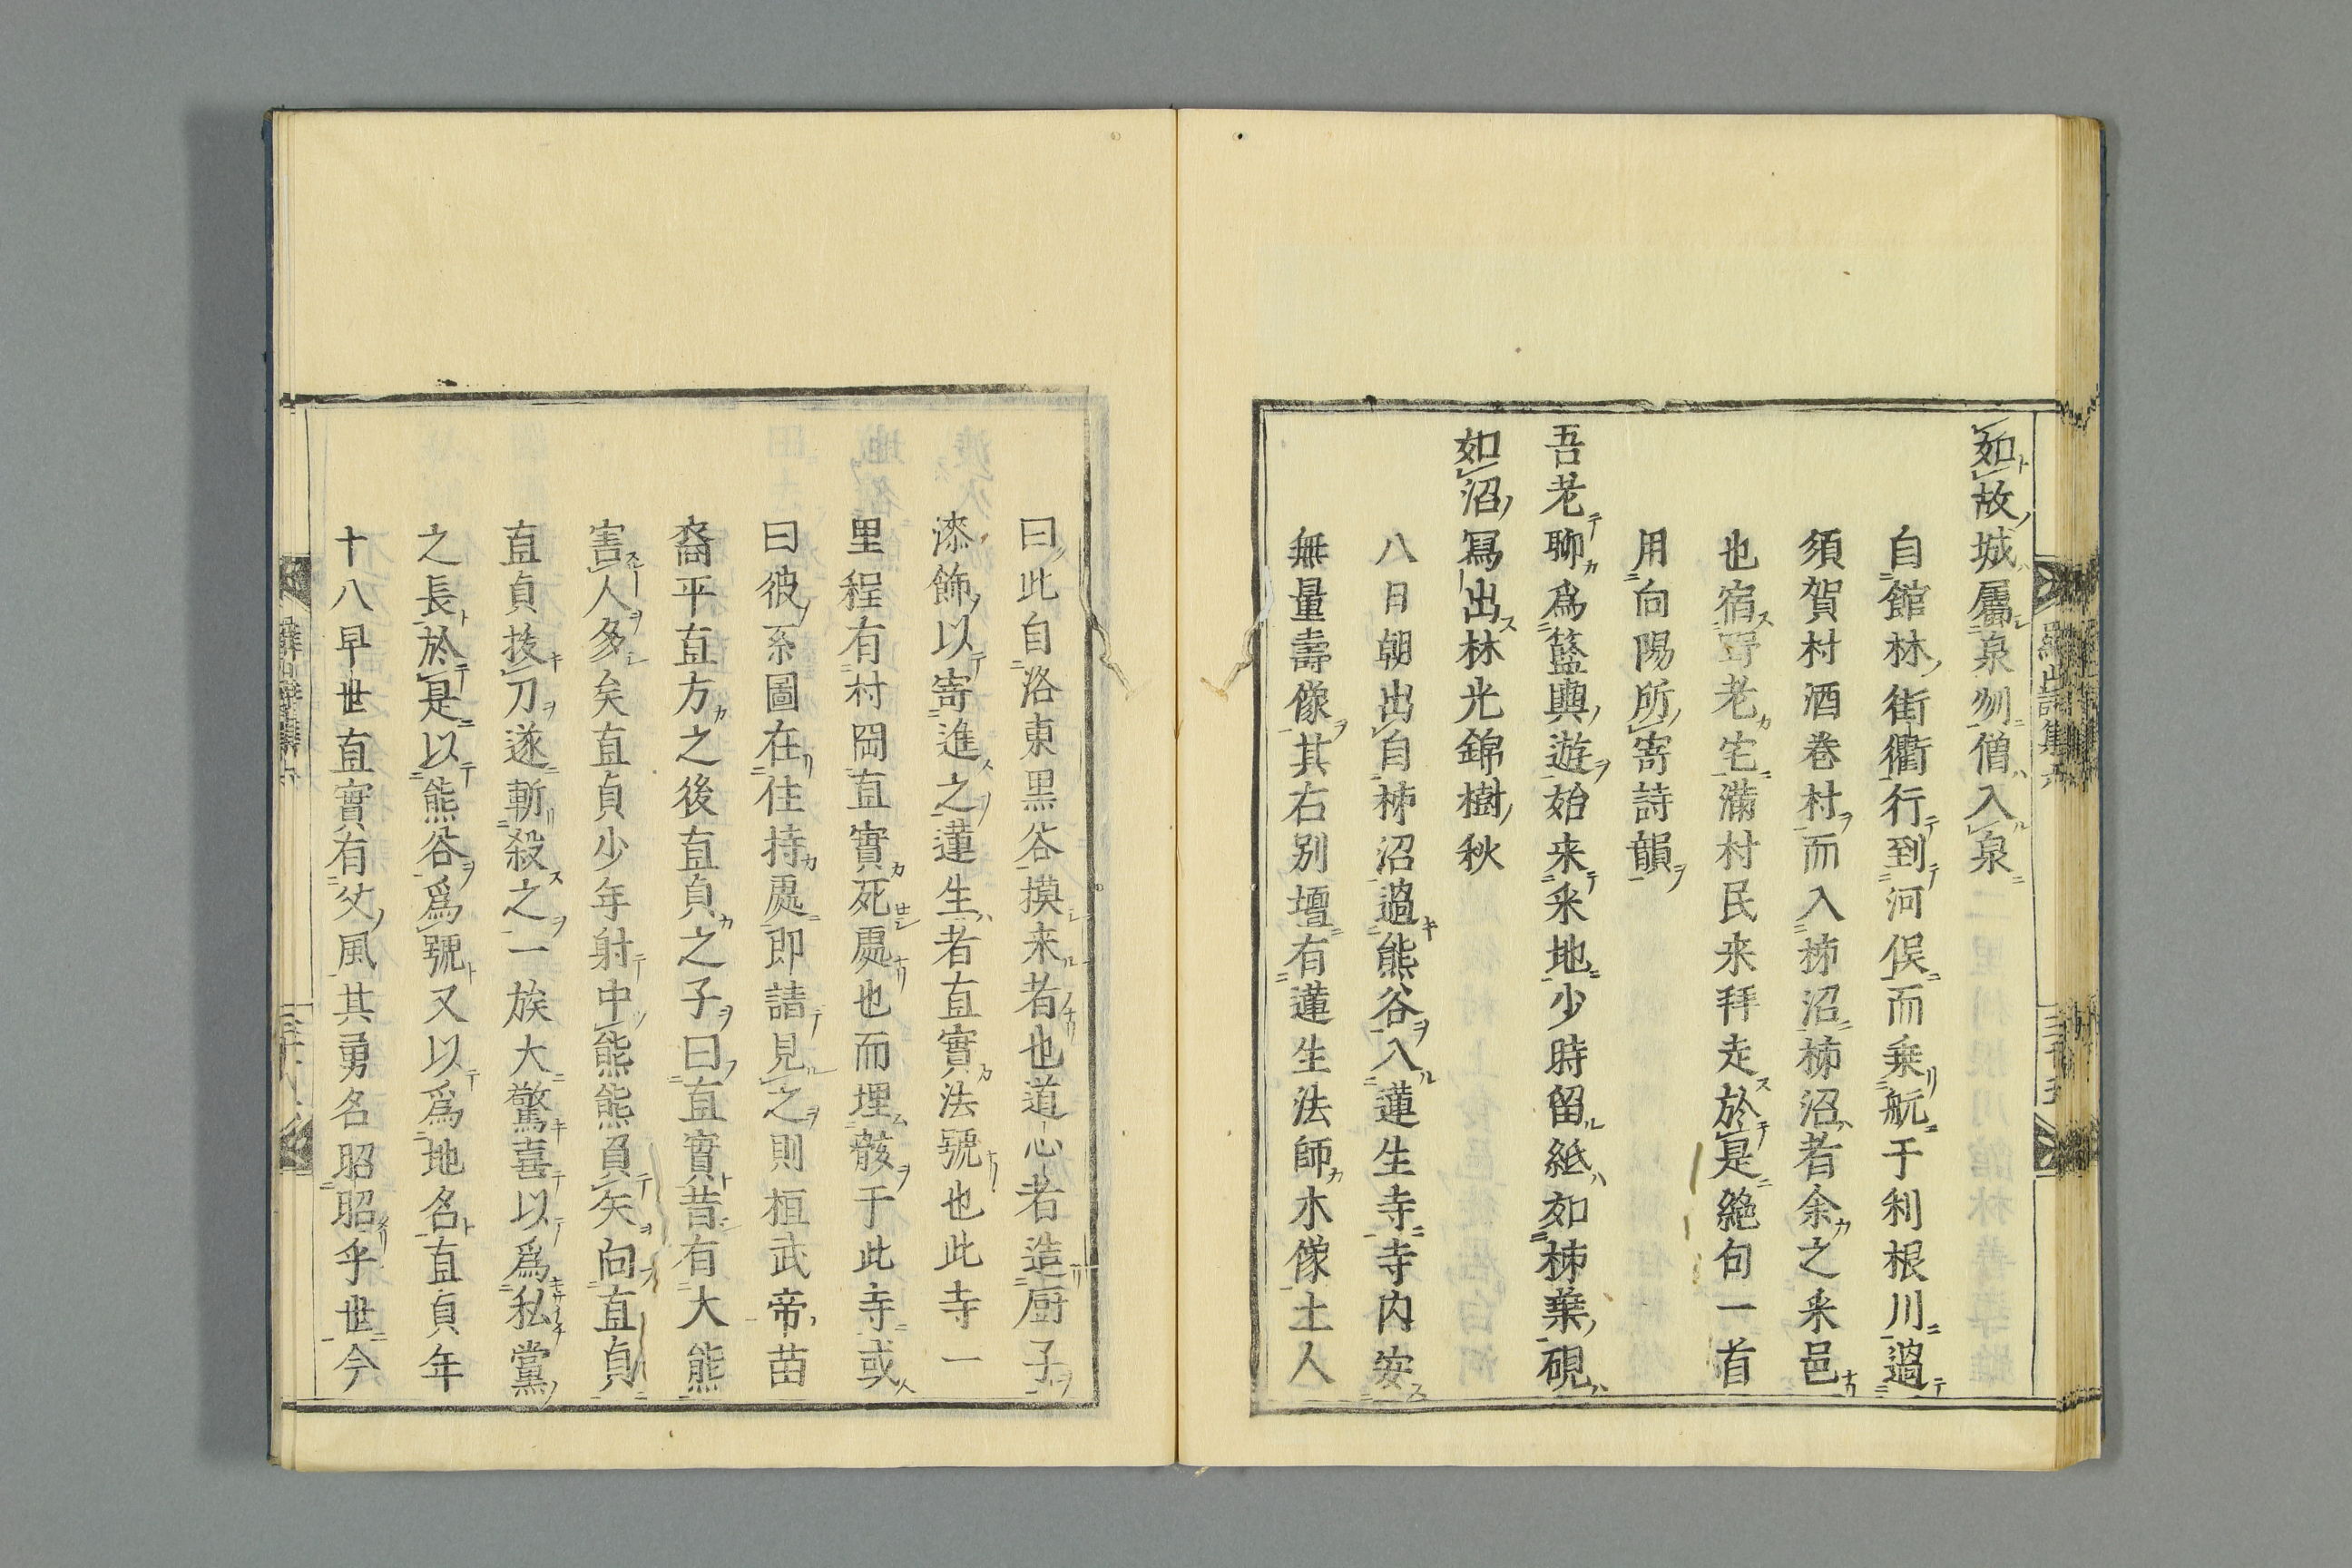 如故城屬泉刕僧入泉
自館林街衢行到河俣而乗航于利根川過
須賀村酒卷村而入柿沼柿沼者余之釆邑
也宿野老宅滿村民来拜走於是絶句一首
用向陽所寄詩韻
吾老聊爲籃輿遊始来釆地少時留紙如柿葉硯
如沼冩出林光錦樹秋
八日朝出自柿沼過熊谷入蓮生寺寺内安
無量壽像其右別壇有蓮生法師木像土人
曰此自洛東黒谷摸来者也道心者造厨子
漆飾以寄進之蓮生者直實法號也此寺一
里程有村岡直實死處也而埋骸于此寺或
曰彼系圖在住持處即請見之則桓武帝苗
裔平直方之後直貞之子曰直實昔有大熊
害人多矣直貞少年射中熊熊負矢向直貞
直貞拔刀遂斬殺之一族大驚喜以爲私黨
之長於是以熊谷爲號又以爲地名直貞年
十八早世直實有父風其勇名昭昭乎世今